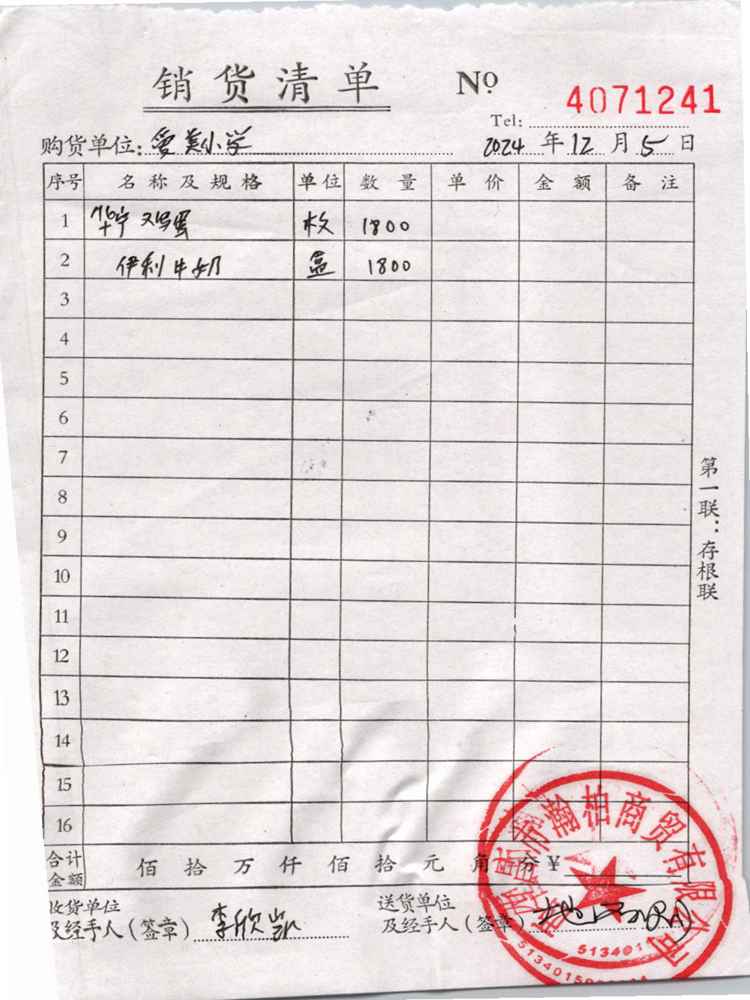 销货清单 Nº 4071241
Tel:
购货单位: 爱美小学 2024 年 12 月 5 日
序号 名称及规格 单位 数量 单价 金额 备注
1 华宁鸡蛋 枚 1800
2 伊利牛奶 盒 1800
3
4
5
6
7
8
9
10
11
12
13
14
15
16
合计金额 佰拾万仟佰拾元角分¥
收货单位
及经手人(签章) 李欣凯
送货单位
及经手人(签章)
第一联:存根联
瀚柏商贸有限公司